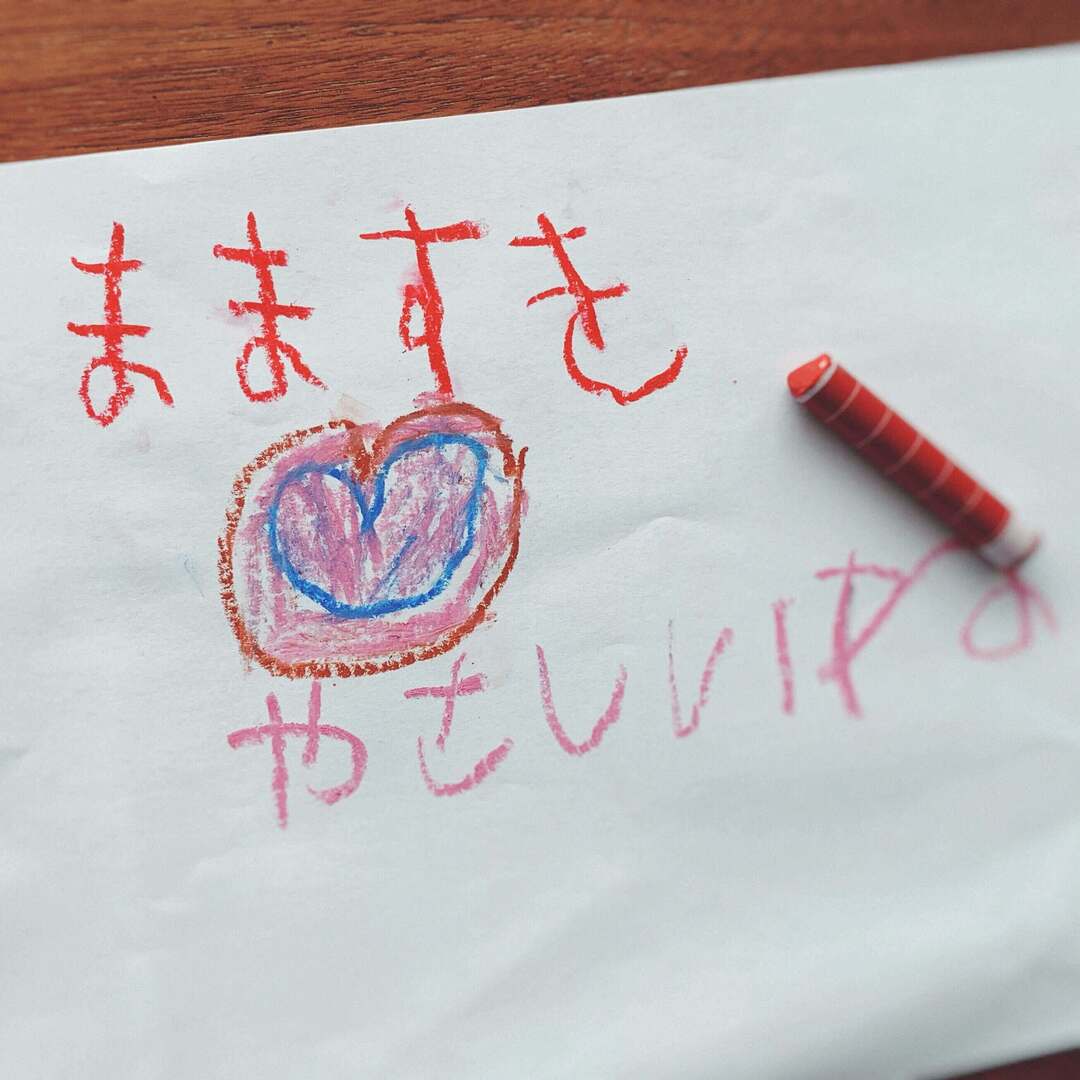 まますき
やさしい